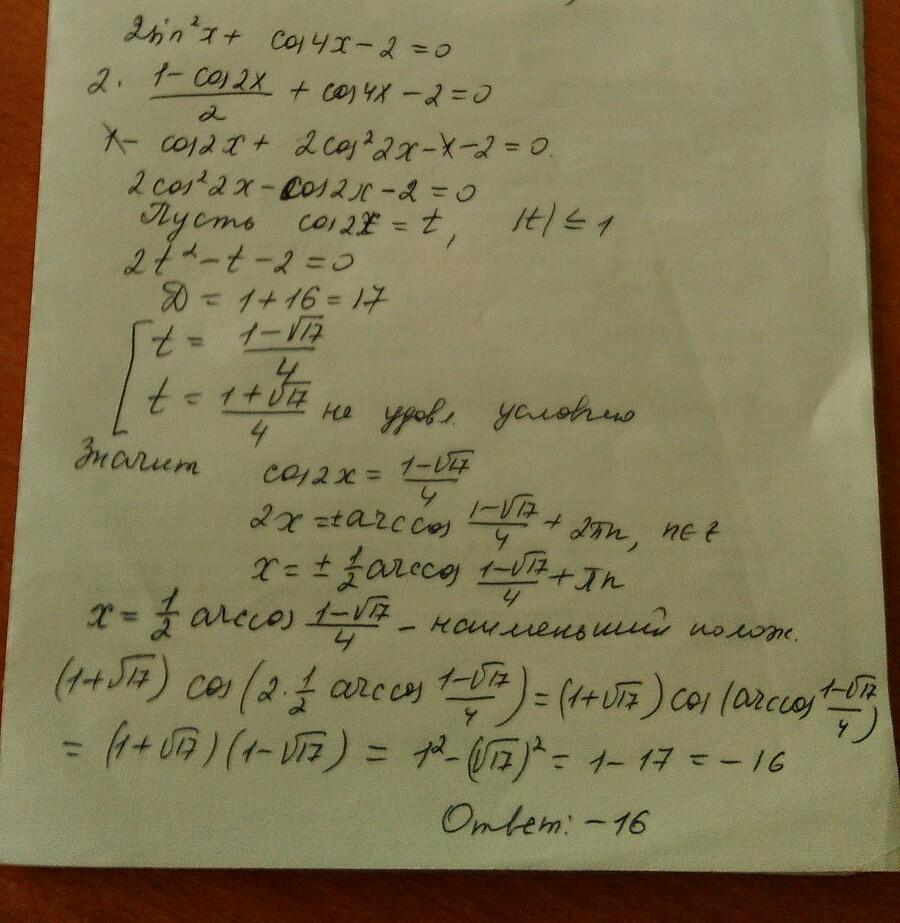 2sin²x + cos4x − 2 = 0
2 · (1 − cos2x)/2 + cos4x − 2 = 0
1 − cos2x + 2cos²2x − 1 − 2 = 0.
2cos²2x − cos2x − 2 = 0
Пусть cos2x = t, |t| ≤ 1
2t² − t − 2 = 0
D = 1 + 16 = 17
[ t = (1 − √17)/4
t = (1 + √17)/4 не удовл. условию
Значит cos2x = (1 − √17)/4
2x = ± arccos (1 − √17)/4 + 2πn, n ∈ z
x = ± 1/2 arccos (1 − √17)/4 + πn
x = 1/2 arccos (1 − √17)/4 – наименьший полож.
(1 + √17) cos(2 · 1/2 arccos (1 − √17)/4) = (1 + √17) cos(arccos (1 − √17)/4)
= (1 + √17)(1 − √17) = 1² − (√17)² = 1 − 17 = − 16
Ответ: − 16